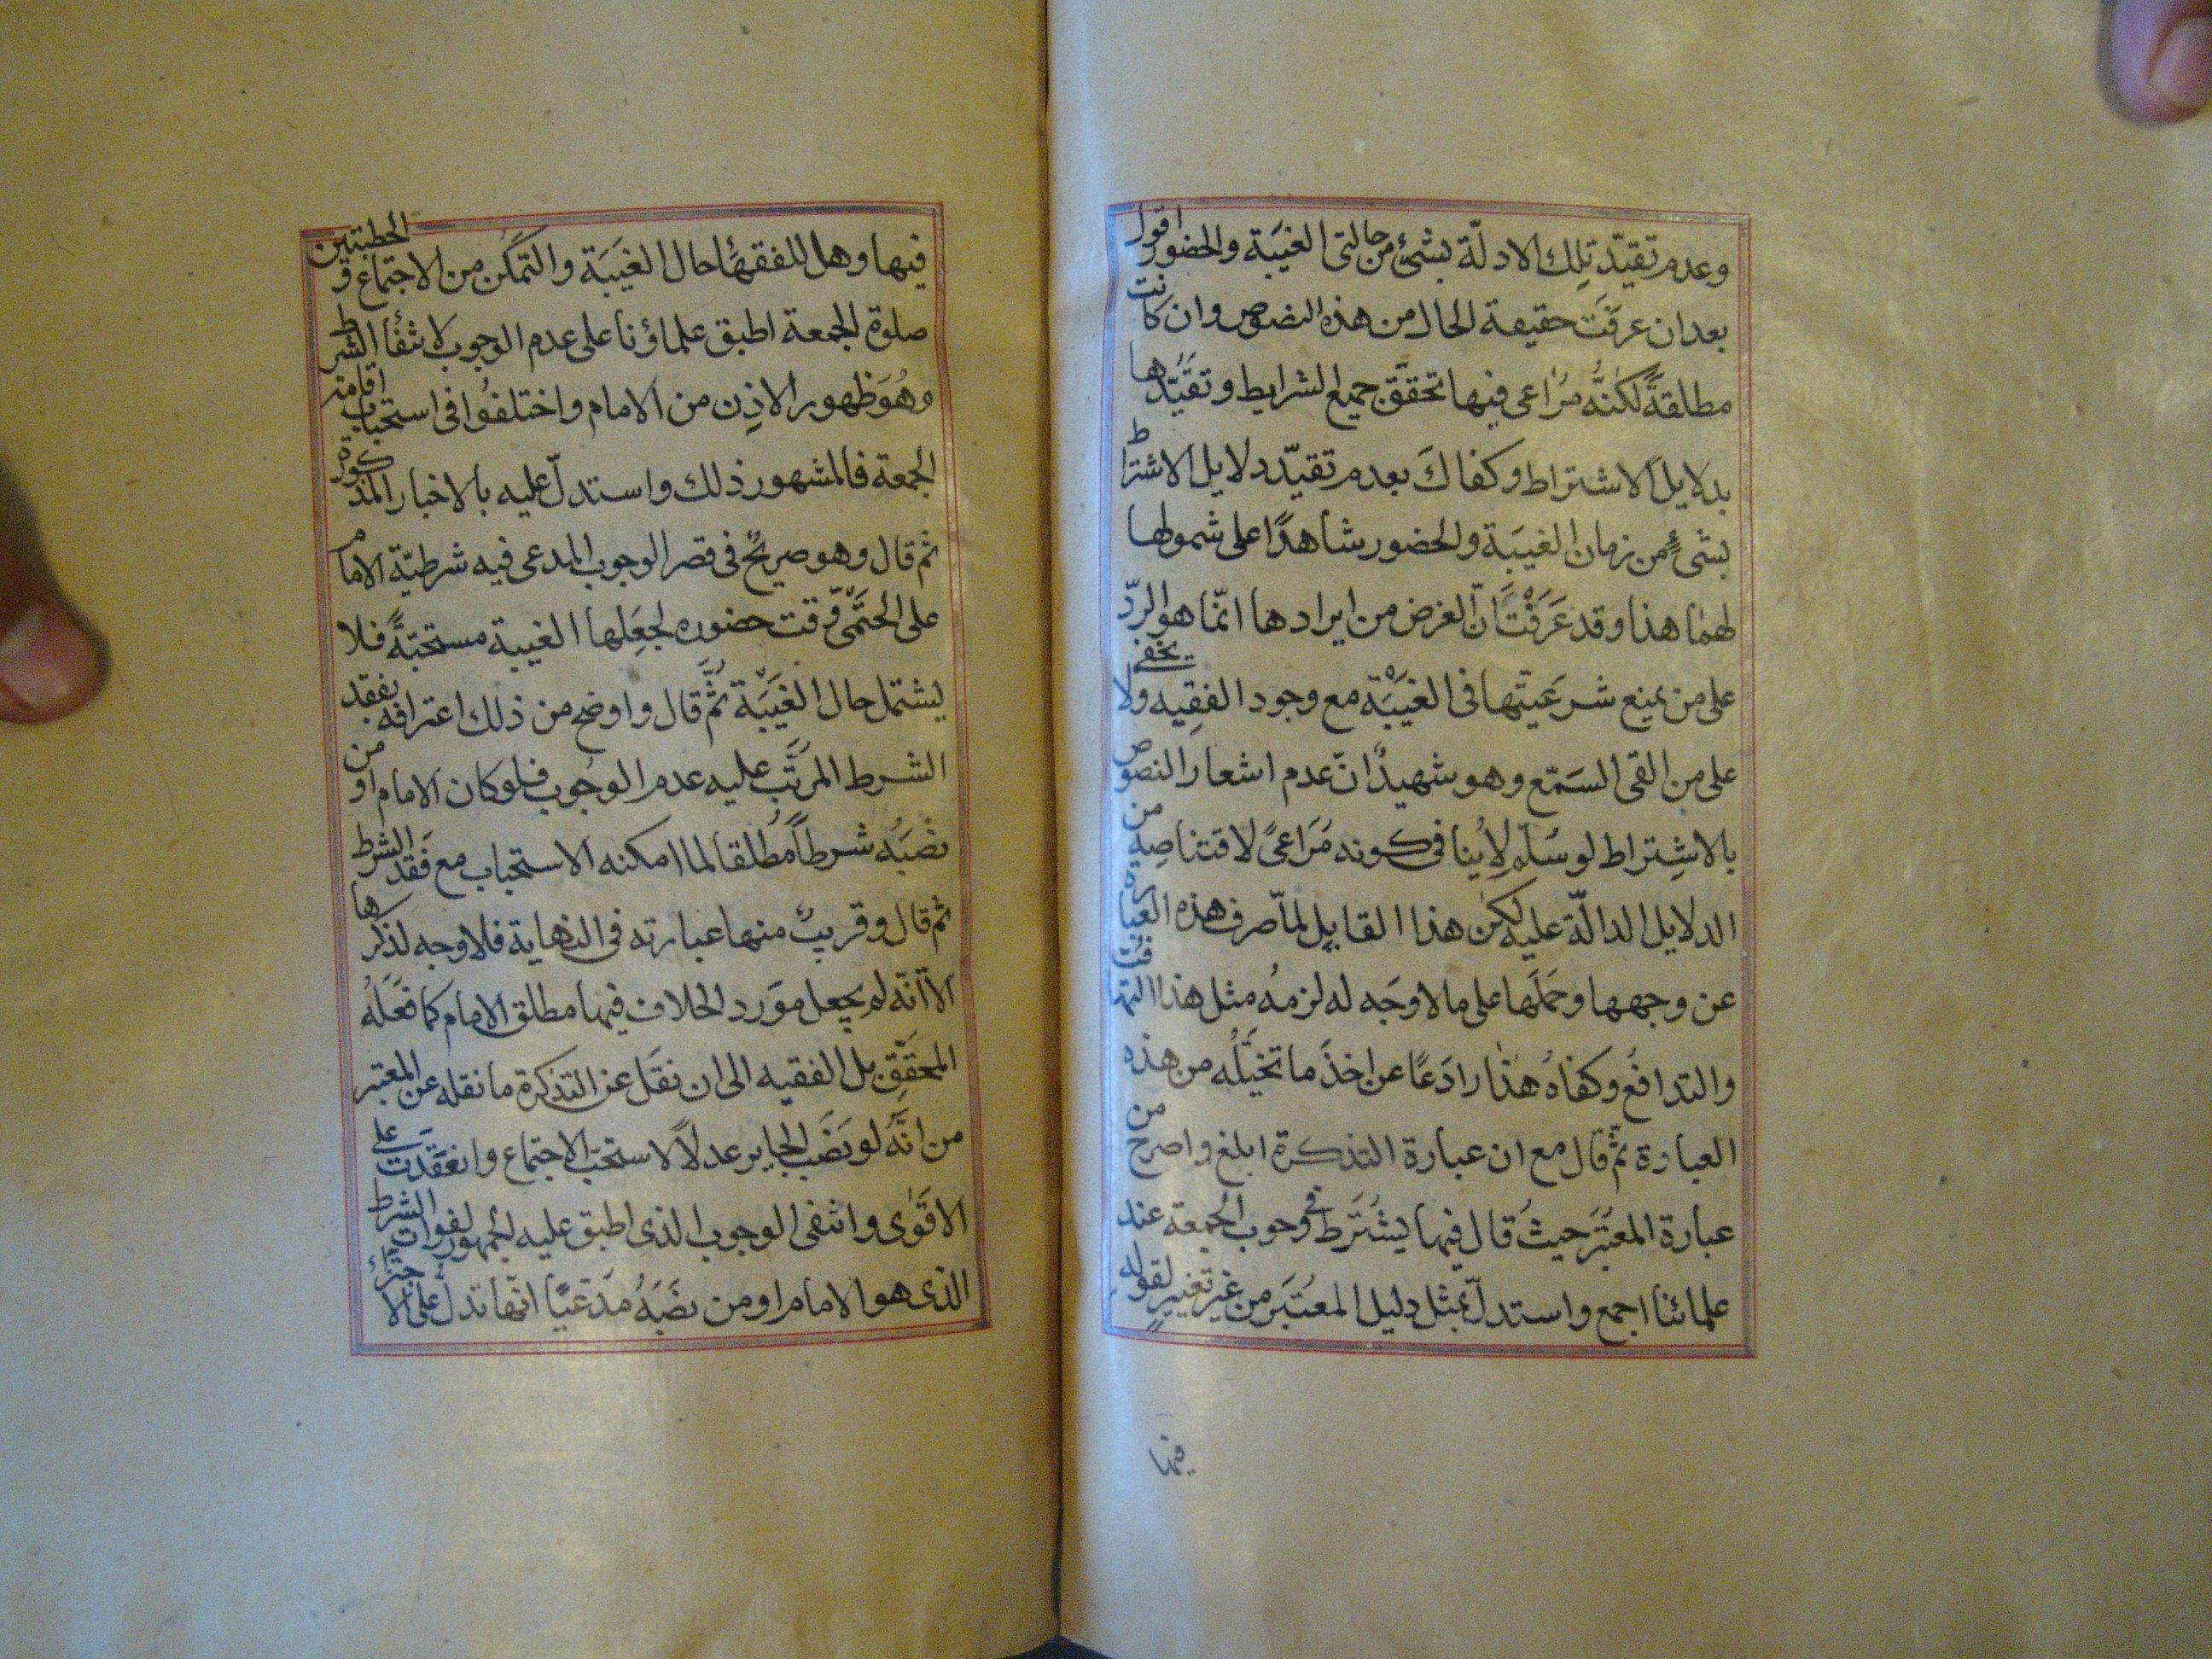 وعدم تقيّد تلك الادلّة بشئ من حالتى الغيبة والحضور اقول
بعد ان عرفت حقيقة الحال من هذه النصوص وان كانت
مطلقةً لكنّه مُراعى فيها تحقّق جميع الشرايط وتقيّدها
بدلايل الاشتراط وكفاك بعدم تقيّد دلايل الاشتراط
بشئ من زمان الغيبة والحضور شاهدًا على شمولها
لهما هذا وقد عرفت انّ الغرض من ايرادها انّما هو الردّ
على من يمنع شرعيّتها فى الغيبة مع وجود الفقيه ولا يخفى
على من القى السمع وهو شهيدٌ انّ عدم اشعار النصوص
بالاشتراط لو سُلّم لا ينا فى كونه مُراعىً لاقتناصه من
الدلايل الدالّة عليه لكن هذا القايل لمّا صرف هذه العبارة
عن وجهها وحملها على ما لا وجه له لزمه مثل هذا التهافت
والتدافع وكفاهُ هذا رادعًا عن اخذ ما تخيّله من هذه
العبارة ثمّ قال مع ان عبارة التذكرة ابلغ واصرح من
عبارة المعتبر حيث قال فيها يشترط فى وجوب الجمعة عند
علمائنا اجمع واستدلّ بمثل دليل المعتبر من غير تغيير لقوله
فيها
فيها وهل للفقهاء حال الغيبة والتمكن من الاجتماع و الخطبتين
صلوة الجمعة اطبق علماؤنا على عدم الوجوب لانتفاء الشرط
وهو ظهور الاذن من الامام واختلفوا فى استحباب اقامة
الجمعة فالمشهور ذلك واستدلّ عليه بالاخبار المذكورة
ثم قال وهو صريحٌ فى قصر الوجوب المدعى فيه شرطيّة الامام
على الحتمىّ وقت حضوره لجعلها الغيبة مستحبّةً فلا
يشتمل حال الغيبة ثمّ قال واوضح من ذلك اعترافه بفقد
الشرط المرتّب عليه عدم الوجوب فلو كان الامام او من
نصبه شرطاً مطلقا لما امكنه الاستحباب مع فقد الشرط
ثم قال وقريبٌ منها عبارته فى النهاية فلا وجه لذكرها
الا انّه لم يجعل مورد الخلاف فيها مطلق الامام كما فعله
المحقّق بل الفقيه الى ان نقل عن التذكرة ما نقله عن المعتبر
من انّه لو نصب الجاير عدلاً لاستحبّ الاجتماع وانعقدت على
الاقوى وانتفى الوجوب الذى اطبق عليه الجمهور لفوات الشرط
الذى هو الامام او من نصبه مدّعيًا انّها تدلّ على الاجتزاء